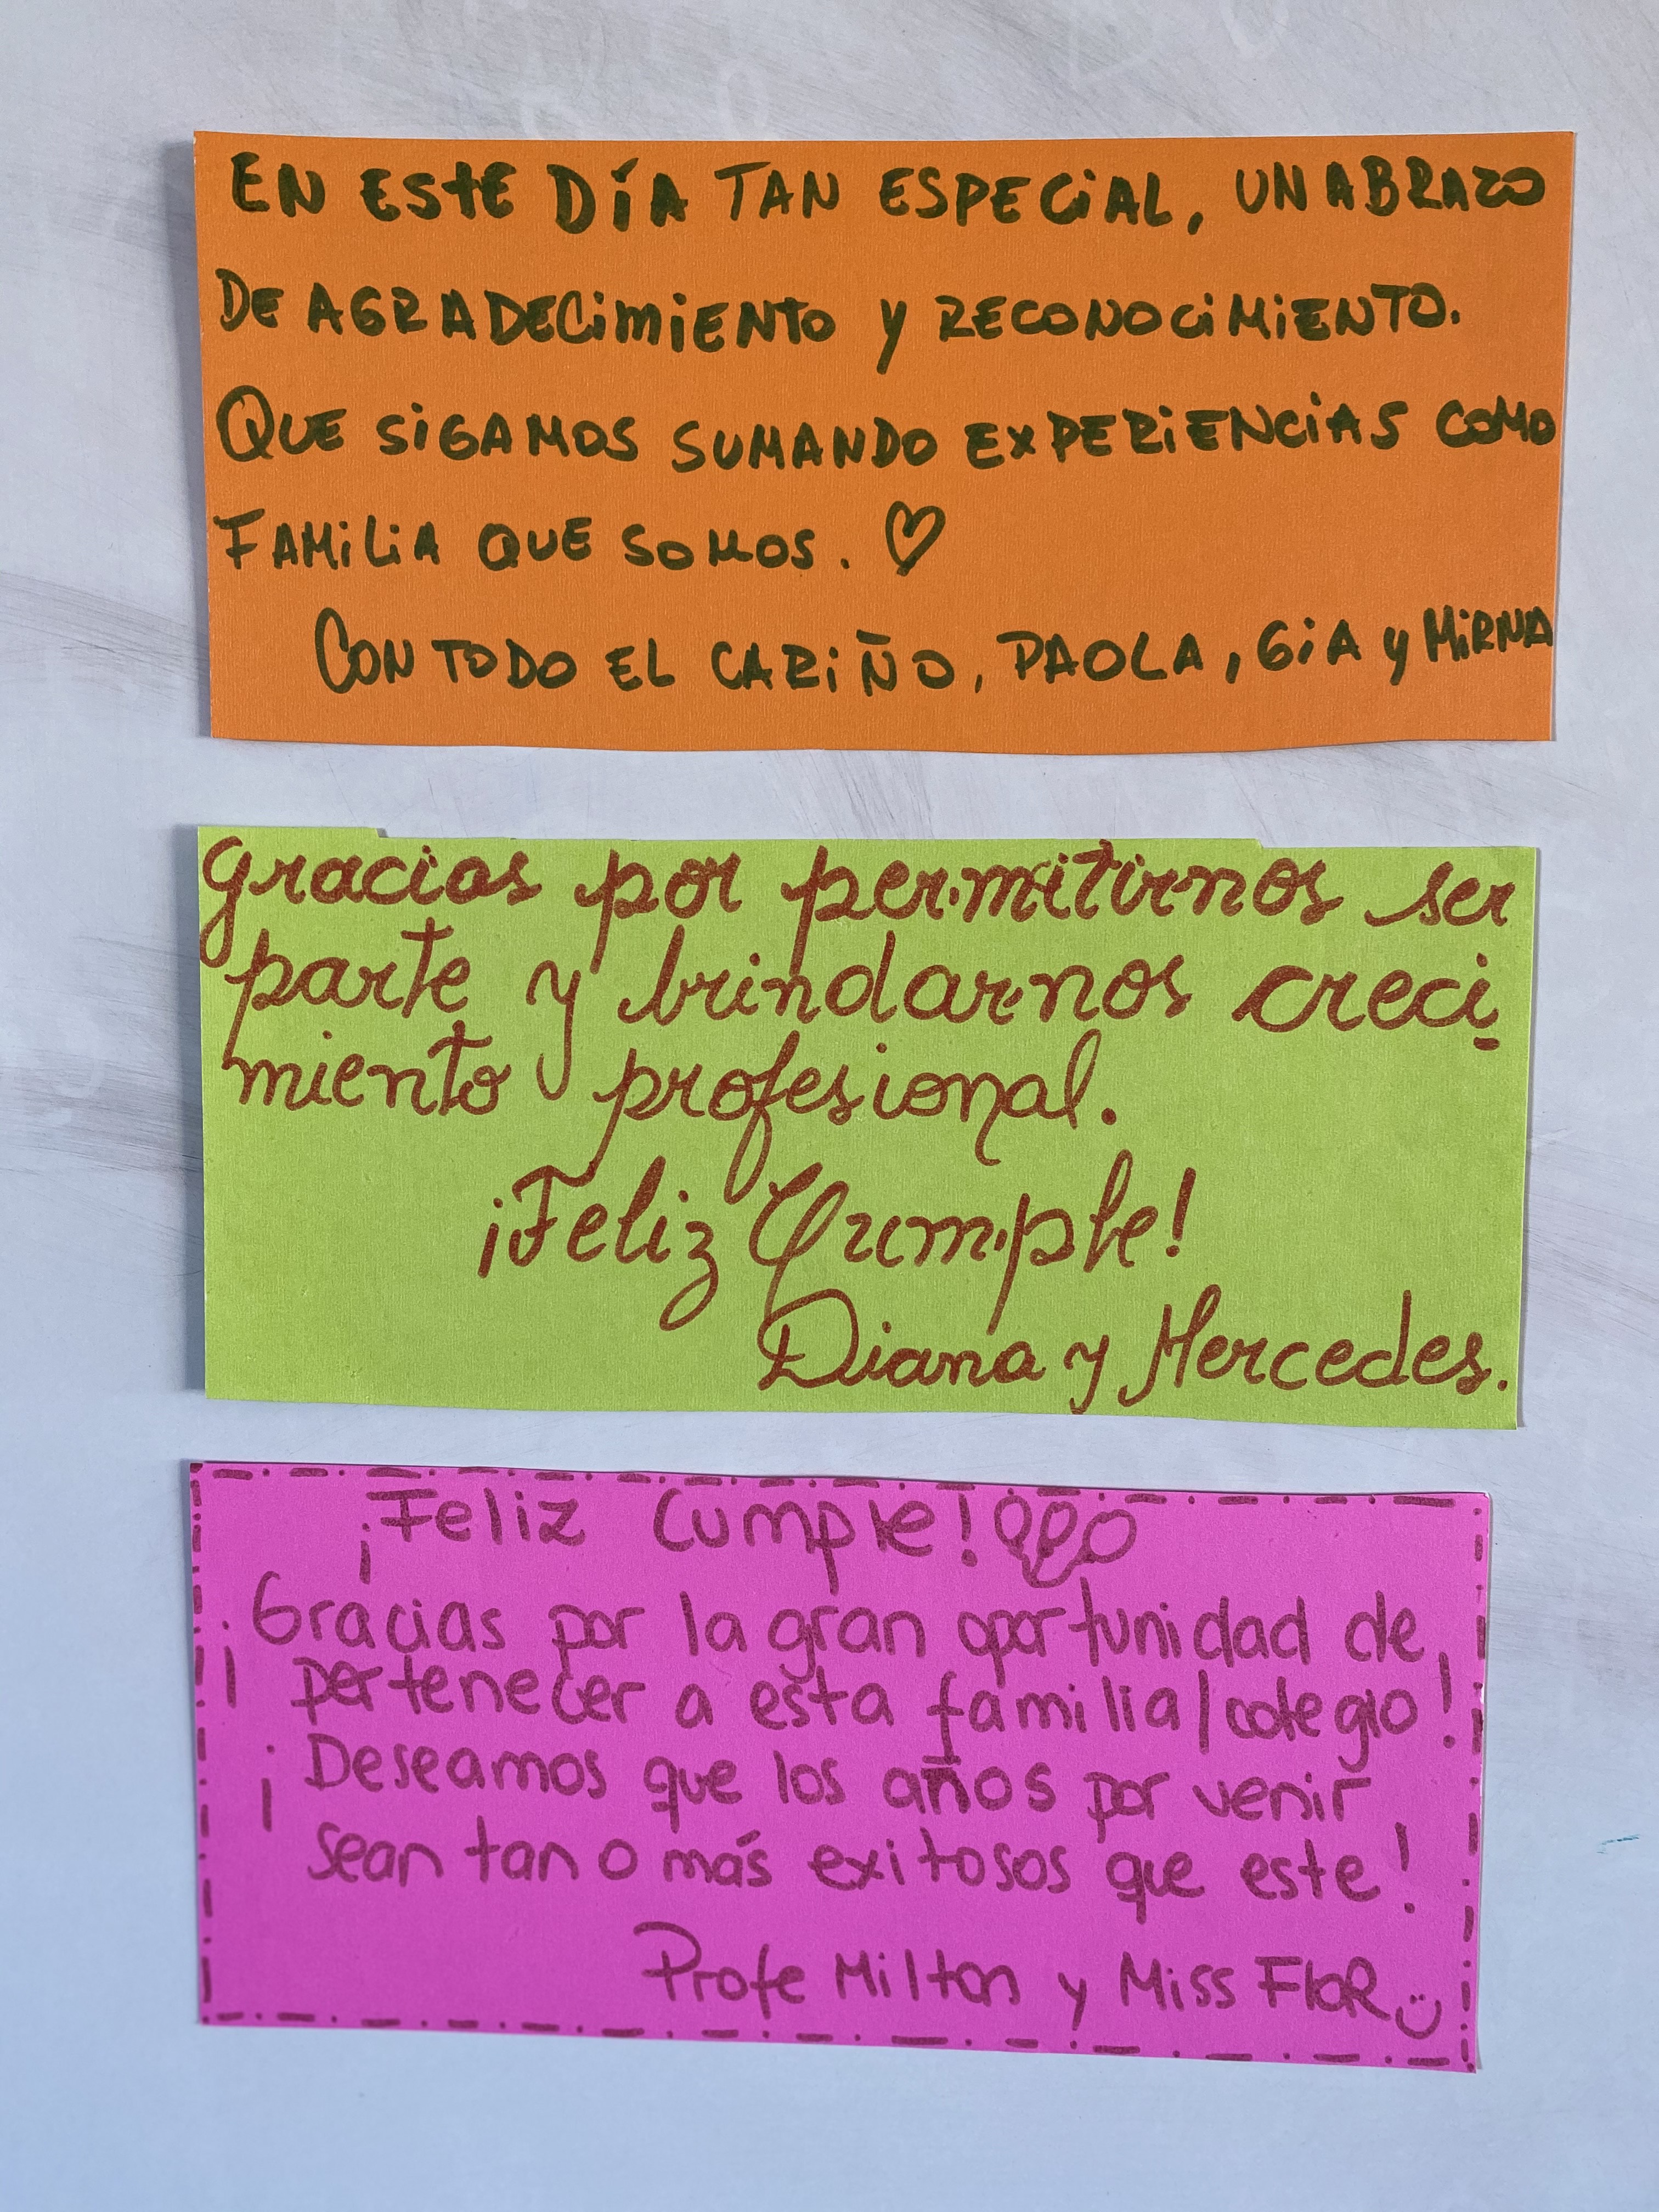 EN ESTE DÍA TAN ESPECIAL, UN ABRAZO
DE AGRADECIMIENTO Y RECONOCIMIENTO.
QUE SIGAMOS SUMANDO EXPERIENCIAS COMO
FAMILIA QUE SOMOS. ♡
CON TODO EL CARIÑO, PAOLA, GIA y MIRNA
gracias por permitirnos ser
parte y brindarnos creci
miento profesional.
¡Feliz Cumple!
Diana y Mercedes.
¡Feliz Cumple!
¡Gracias por la gran oportunidad de
pertenecer a esta familia/colegio!
¡Deseamos que los años por venir
sean tan o más exitosos que este!
Profe Milton y Miss Flor